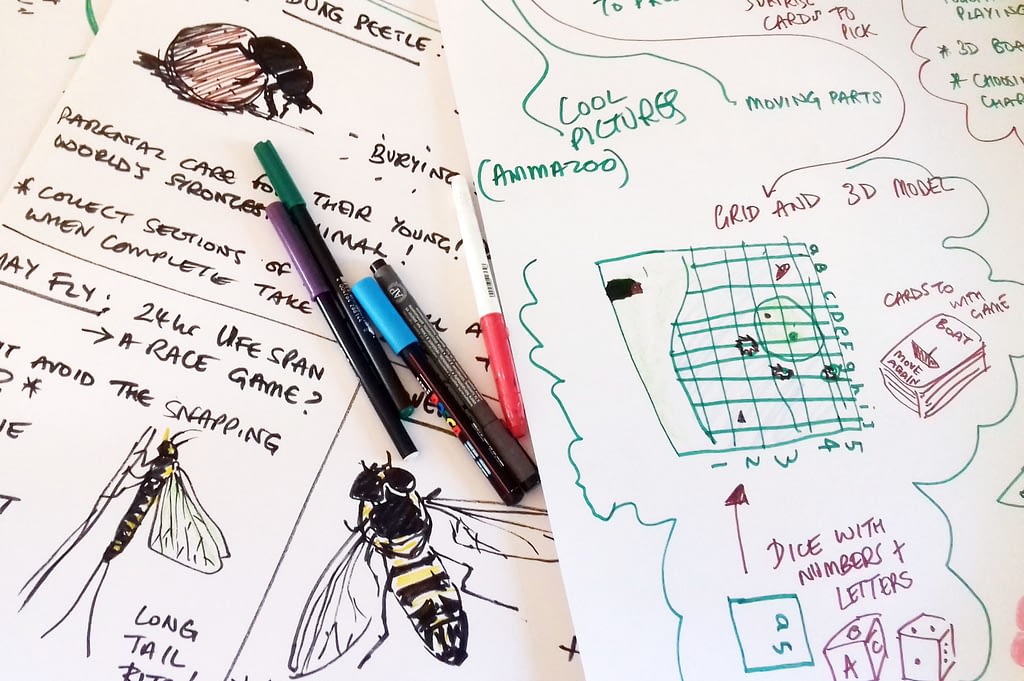 DUNG BEETLE:
BURYING
PARENTAL CARE FOR THEIR YOUNG!
WORLD'S STRONGEST ANIMAL!
* COLLECT SECTIONS OF
WHEN COMPLETE TAKE
MAY FLY: 24hr LIFE SPAN
→ A RACE GAME?
AVOID THE SNAPPING
? *
LONG
TAIL
SURPRISE
CARDS TO
PICK
COOL
PICTURES
(AMMAZOO)
MOVING PARTS
PLAYING
* 3D BOA
* CHOOSIN
CHAR
GRID AND 3D MODEL
a
B
C
D
F
g
h
i
j
1 2 3 4 5
CARDS TO
WITH
GAME
BOAT
MOVE
AGAIN
DICE WITH
NUMBERS +
LETTERS
a5
A
C